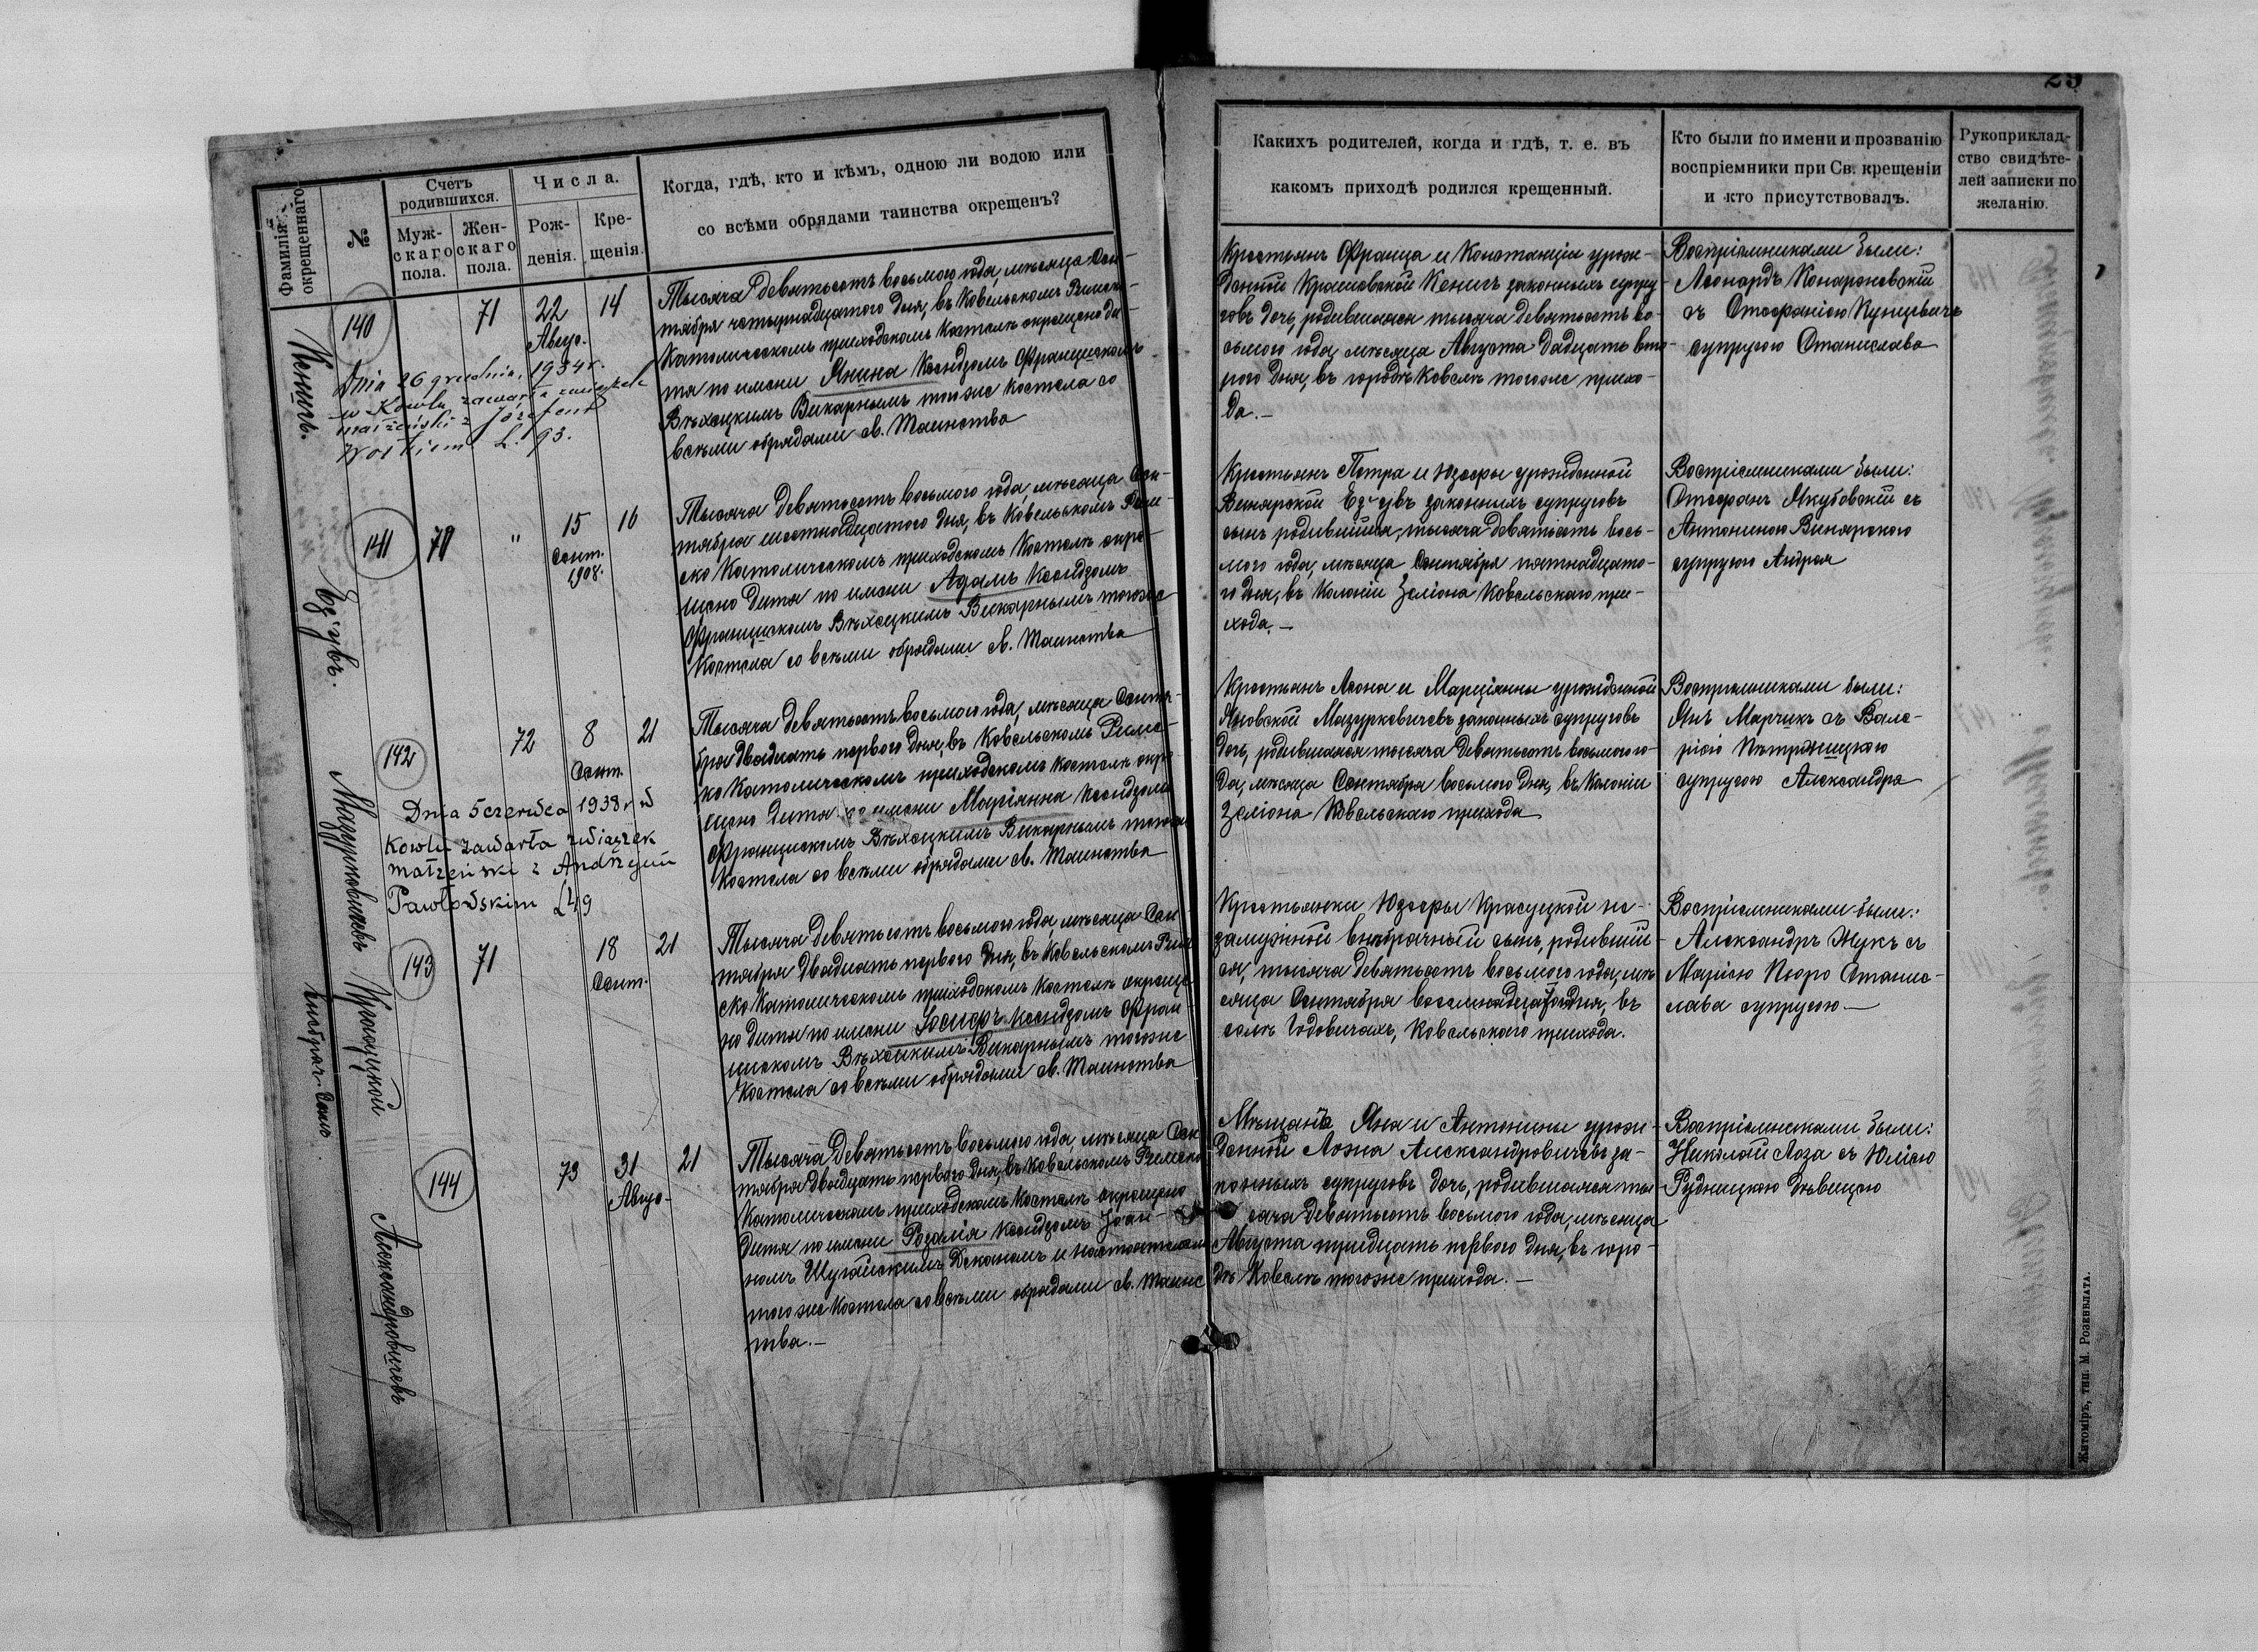 25
Фамилія
окрещеннаго
№
Счетъ
родившихся.
Муж-
скаго
пола.
Жен-
скаго
пола.
Числа.
Рож-
денія.
Кре-
щенія.
Когда, гдѣ, кто и кѣмъ, одною ли водою или
со всѣми обрядами таинства окрещенъ?
Какихъ родителей, когда и гдѣ, т. е. въ
какомъ приходѣ родился крещенный.
Кто были по имени и прозванію
воспріемники при Св. крещеніи
и кто присутствовалъ.
Рукоприклад-
ство свидѣте-
лей записки по
желанію.
Кенигъ.
140
71
22
Авгус.
14
Dnia 26 grudnia, 1934 r.
w Kowlu zawarła związek
małżeński z Józefem
L. 93.
Тысяча девятьсотъ восьмого года, мѣсяца Сен-
тября четырнадцатого дня, въ Ковельскомъ Римско-
Католическомъ приходскомъ костелѣ окрещено ди-
тя по имени Янина Ксендзомъ Францискомъ
Вѣхецкимъ Викарнымъ тогоже костела со
всѣми обрядами св. Таинства
Крестьянъ Франца и Констанціи урож-
денной Красновской Кенигъ законныхъ супру
говъ дочь, родившаяся тысяча девятьсотъ во-
сьмого года, мѣсяца Августа двадцать вто-
рого дня, въ городѣ Ковелѣ тогоже прихо-
да.—
Воспріемниками были:
Леонардъ Конароковскій
съ Стефаніею Кунцевичъ
супругою Станислава
141
70
"
15
Сент.
1908.
16
Тысяча девятьсотъ восьмого года, мѣсяца Сен-
тября шестнадцатого дня, въ Ковельскомъ Рим-
ско Католическомъ приходскомъ Костелѣ окре-
щено дитя по имени Адамъ Ксендзомъ
Францискомъ Вѣхецкимъ Викарнымъ тогоже
Костела со всѣми обрядами св. Таинства
Крестьянъ Петра и Юзефы урожденной
Винярской законныхъ супруговъ
сынъ родившійся, тысяча девятьсотъ вось-
мого года, мѣсяца Сентября пятнадцато-
го дня, въ Колоніи Зеліона Ковельскаго при-
хода.—
Воспріемниками были:
Стефанъ Якубовскій съ
Антониною Винярскою
супругою Андрея
Мазуркевичевъ
142
72
8
Сент.
21
Dnia 5 czerwca 1938 r. w
Kowlu zawarła związek
małżeński z Andrzejem
Pawłowskim L 49
Тысяча девятьсотъ восьмого года, мѣсяца Сентя-
бря двадцать перваго дня, въ Ковельскомъ Римс-
ко Католическомъ приходскомъ костелѣ окре
щено дитя по имени Маріянна Ксендзомъ
Францискомъ Вѣхецкимъ Викарнымъ тогоже
Костела со всѣми обрядами св. Таинства
Крестьянъ Леона и Марціянны урожденной
Яновской Мазуркевичевъ законныхъ супруговъ
дочь, родившаяся тысяча девятьсотъ восьмого го-
да, мѣсяца Сентября восьмого дня, въ Колоніи
Зеліона Ковельскаго прихода
Воспріемниками были:
Янъ Марчикъ съ Вале-
ріею
супругою Александра
Красуцкой
143
71
18
Сент.
21
Тысяча девятьсотъ восьмого года, мѣсяца Сен
тября двадцать перваго дня, въ Ковельскомъ Рим
ско Католическомъ приходскомъ костелѣ окреще
но дитя по имени Іосифъ Ксендзомъ Фран-
цискомъ Вѣхецкимъ Викарнымъ тогоже
Костела со всѣми обрядами св. Таинства
Крестьянки Юзефы Красуцкой не-
замужной внѣбрачный сынъ, родивший-
ся, тысяча девятьсотъ восьмого года, мѣ
сяца Сентября восемнадцатого дня, въ
селѣ Годовичахъ, Ковельскаго прихода.
Воспріемниками были:
Александръ Жукъ съ
Маріею Пюро Станис-
лава супругою—
Александровичевъ
144
73
31
Авгус-
21
Тысяча девятьсотъ восьмого года, мѣсяца Сен
тября двадцать перваго дня, въ Ковельскомъ Римско
Католическомъ приходскомъ костелѣ окрещено
дитя по имени Розалія Ксендзомъ Іоан-
номъ Шугайскимъ Деканомъ и Настоятелемъ
тогоже Костела со всѣми обрядами св. Таинс
тва.—
Мѣщанъ Яна и Антонины урож-
денной Лозна Александровичевъ за-
конныхъ супруговъ дочь, родившаяся ты-
сяча девятьсотъ восьмого года, мѣсяца
Августа тридцать перваго дня, въ горо-
дѣ Ковелѣ тогоже прихода.—
Воспріемниками были:
Николай Лоза съ Юліею
Рудницкою дѣвицею
Житоміръ, тип. М. Розенблата.